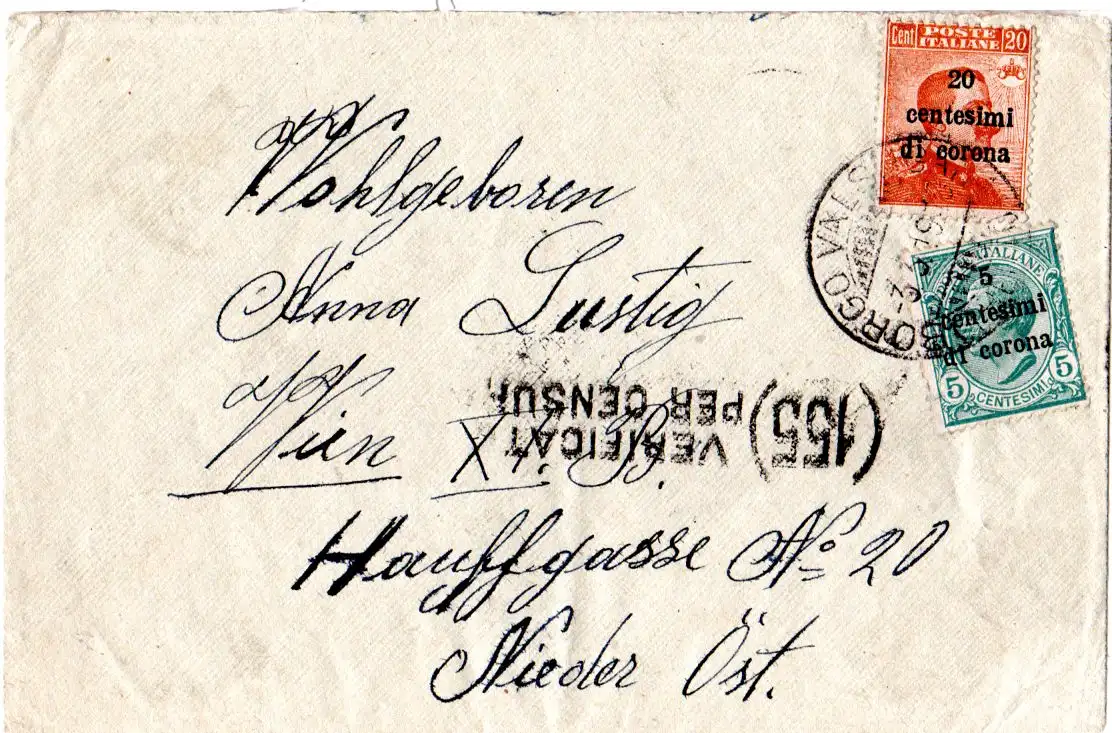 Cent POSTE ITALIANE 20
20
centesimi
di corona
Wohlgeboren
Anna Lustig
Wien XI. B.
Hauffgasse No 20
Nieder Öst.
BORGO VALS
ITALIANE
5
centesimi
di corona
5 CENTESIMI 5
(155) VERIFICAT
PER CENSUR